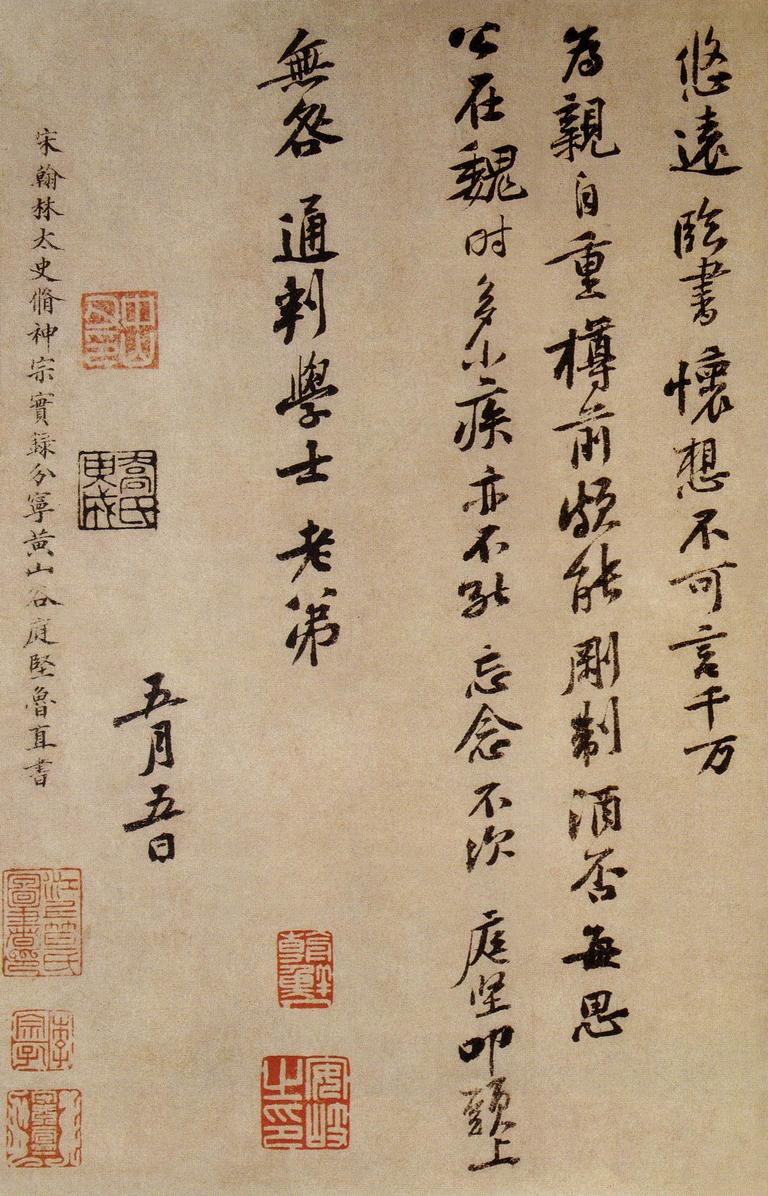 悠遠臨書懷想不可言千万
為親自重樽前頗能剛制酒否每思
公在魏时多小疾亦不能忘念不次 庭坚叩頭上
無咎 通判學士老弟
五月五日
宋翰林太史脩神宗實録分寧黃山谷庭堅魯直書
喬氏
安岐之印